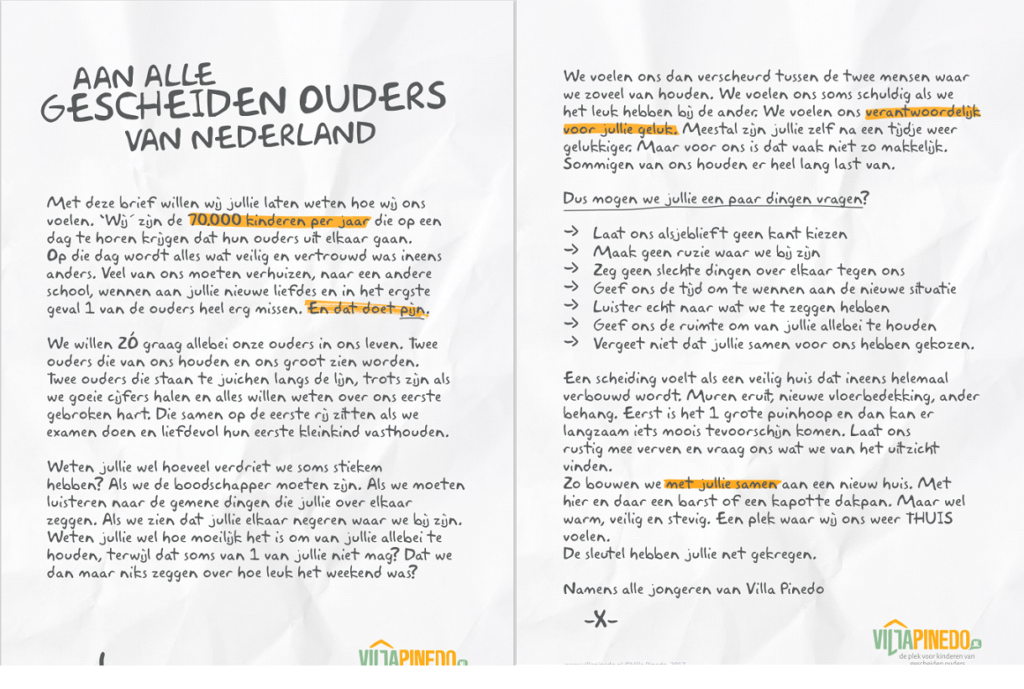 AAN ALLE
GESCHEIDEN OUDERS
VAN NEDERLAND
Met deze brief willen wij jullie laten weten hoe wij ons
voelen. 'Wij' zijn de 70.000 kinderen per jaar die op een
dag te horen krijgen dat hun ouders uit elkaar gaan.
Op die dag wordt alles wat veilig en vertrouwd was ineens
anders. Veel van ons moeten verhuizen, naar een andere
school, wennen aan jullie nieuwe liefdes en in het ergste
geval 1 van de ouders heel erg missen. En dat doet pijn.
We willen ZÓ graag allebei onze ouders in ons leven. Twee
ouders die van ons houden en ons groot zien worden.
Twee ouders die staan te juichen langs de lijn, trots zijn als
we goeie cijfers halen en alles willen weten over ons eerste
gebroken hart. Die samen op de eerste rij zitten als we
examen doen en liefdevol hun eerste kleinkind vasthouden.
Weten jullie wel hoeveel verdriet we soms stiekem
hebben? Als we de boodschapper moeten zijn. Als we moeten
luisteren naar de gemene dingen die jullie over elkaar
zeggen. Als we zien dat jullie elkaar negeren waar we bij zijn.
Weten jullie wel hoe moeilijk het is om van jullie allebei te
houden, terwijl dat soms van 1 van jullie niet mag? Dat we
dan maar niks zeggen over hoe leuk het weekend was?
VILLAPINEDO.nl
We voelen ons dan verscheurd tussen de twee mensen waar
we zoveel van houden. We voelen ons soms schuldig als we
het leuk hebben bij de ander. We voelen ons verantwoordelijk
voor jullie geluk. Meestal zijn jullie zelf na een tijdje weer
gelukkiger. Maar voor ons is dat vaak niet zo makkelijk.
Sommigen van ons houden er heel lang last van.
Dus mogen we jullie een paar dingen vragen?
→ Laat ons alsjeblieft geen kant kiezen
→ Maak geen ruzie waar we bij zijn
→ Zeg geen slechte dingen over elkaar tegen ons
→ Geef ons de tijd om te wennen aan de nieuwe situatie
→ Luister echt naar wat we te zeggen hebben
→ Geef ons de ruimte om van jullie allebei te houden
→ Vergeet niet dat jullie samen voor ons hebben gekozen.
Een scheiding voelt als een veilig huis dat ineens helemaal
verbouwd wordt. Muren eruit, nieuwe vloerbedekking, ander
behang. Eerst is het 1 grote puinhoop en dan kan er
langzaam iets moois tevoorschijn komen. Laat ons
rustig mee verven en vraag ons wat we van het uitzicht
vinden.
Zo bouwen we met jullie samen aan een nieuw huis. Met
hier en daar een barst of een kapotte dakpan. Maar wel
warm, veilig en stevig. Een plek waar wij ons weer THUIS
voelen.
De sleutel hebben jullie net gekregen.
Namens alle jongeren van Villa Pinedo
-X-
VILLAPINEDO.nl
de plek voor kinderen van
gescheiden ouders